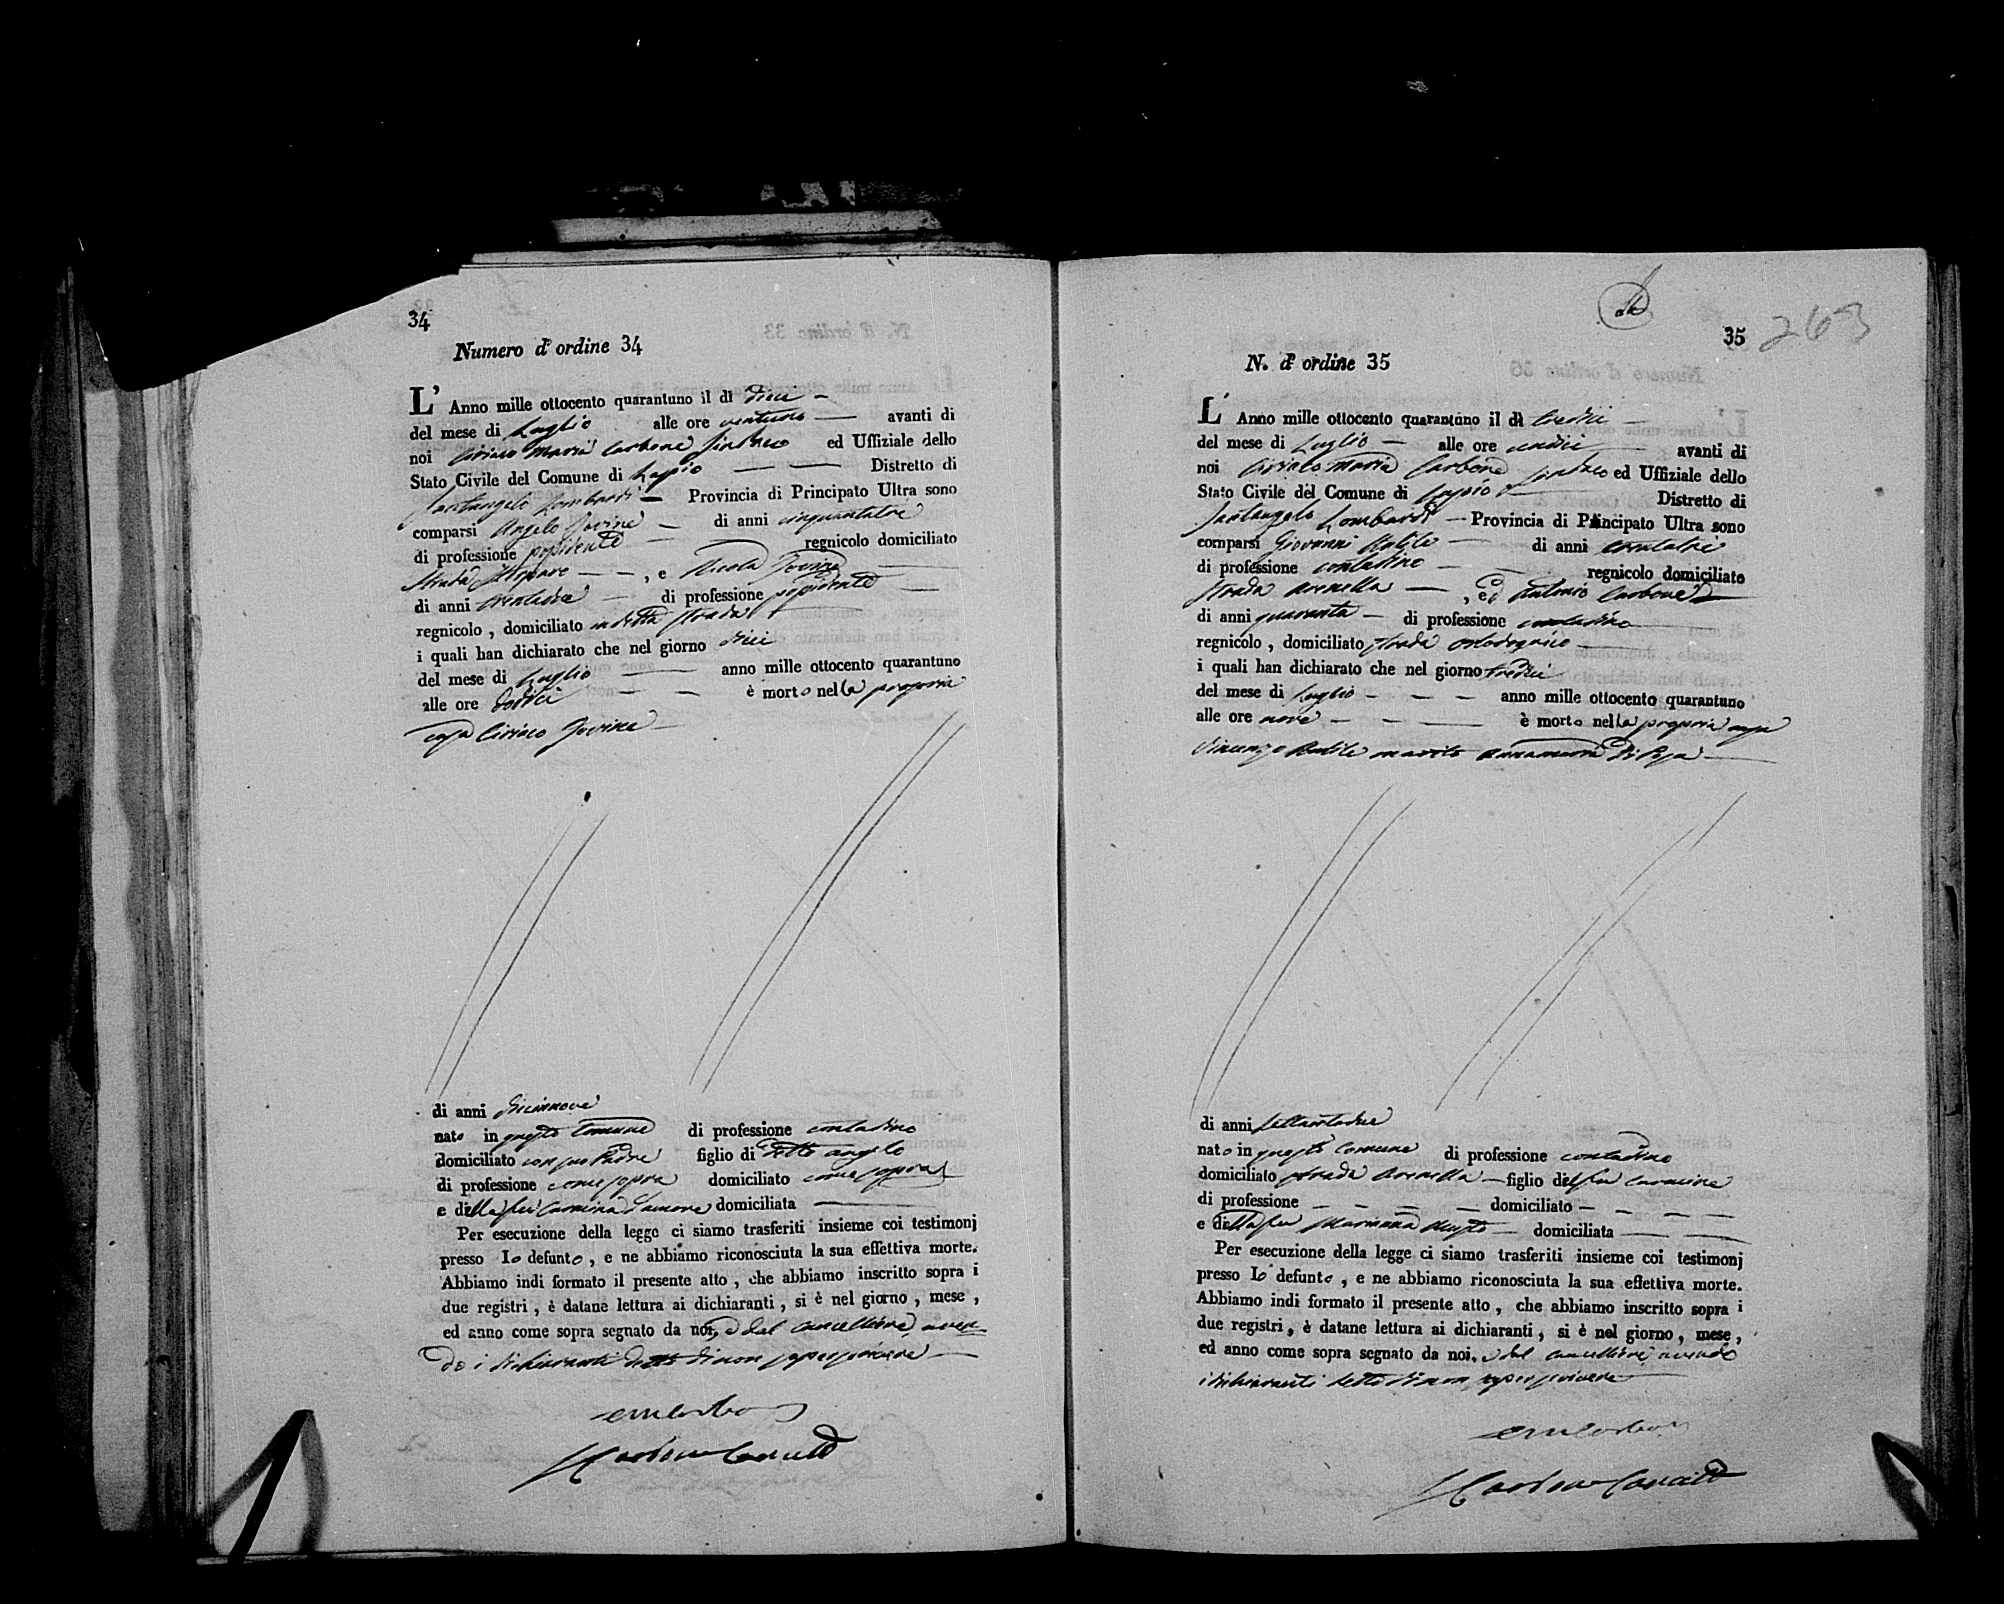 34
Numero d' ordine 34
L' Anno mille ottocento quarantuno il dì dieci
del mese di Luglio alle ore ventuno avanti di
noi Ciriaco Maria Carbone Sindaco ed Uffiziale dello
Stato Civile del Comune di Lapio Distretto di
Santangelo Lombardi Provincia di Principato Ultra sono
comparsi Angelo Jovine di anni cinquantatre
di professione possidente regnicolo domiciliato
Strada , e Nicola Jovine
di anni di professione possidente
regnicolo , domiciliato in detta strada
i quali han dichiarato che nel giorno dieci
del mese di Luglio anno mille ottocento quarantuno
alle ore dodici è morto nella propria
casa Ciriaco Jovine
di anni diciannove
nato in questo Comune di professione contadino
domiciliato con suo Padre figlio di detto Angelo
di professione come sopra domiciliato come sopra
e della fu Carmina d'amore domiciliata
Per esecuzione della legge ci siamo trasferiti insieme coi testimonj
presso lo defunto , e ne abbiamo riconosciuta la sua effettiva morte.
Abbiamo indi formato il presente atto , che abbiamo inscritto sopra i
due registri , è datane lettura ai dichiaranti , si è nel giorno , mese ,
ed anno come sopra segnato da noi, e dal cancelliere, aven
do i dichiaranti detto di non saper scrivere
35
263
N. d' ordine 35
L' Anno mille ottocento quarantuno il dì tredici
del mese di Luglio alle ore undici avanti di
noi Ciriaco Maria Carbone Sindaco ed Uffiziale dello
Stato Civile del Comune di Lapio Distretto di
Santangelo Lombardi Provincia di Principato Ultra sono
comparsi Giovanni di anni trentatre
di professione contadino regnicolo domiciliato
strada Arenella , ed Antonio Carbone
di anni quaranta di professione contadino
regnicolo , domiciliato strada
i quali han dichiarato che nel giorno tredici
del mese di Luglio anno mille ottocento quarantuno
alle ore nove è morto nella propria casa
Vincenzo marito Annamaria
di anni settantadue
nato in questo Comune di professione contadino
domiciliato strada Arenella figlio del fu Carmine
di professione domiciliato
e della fu Marianna domiciliata
Per esecuzione della legge ci siamo trasferiti insieme coi testimonj
presso lo defunto , e ne abbiamo riconosciuta la sua effettiva morte.
Abbiamo indi formato il presente atto , che abbiamo inscritto sopra i
due registri , è datane lettura ai dichiaranti , si è nel giorno , mese ,
ed anno come sopra segnato da noi, e dal cancelliere, avendo
i dichiaranti detto di non saper scrivere